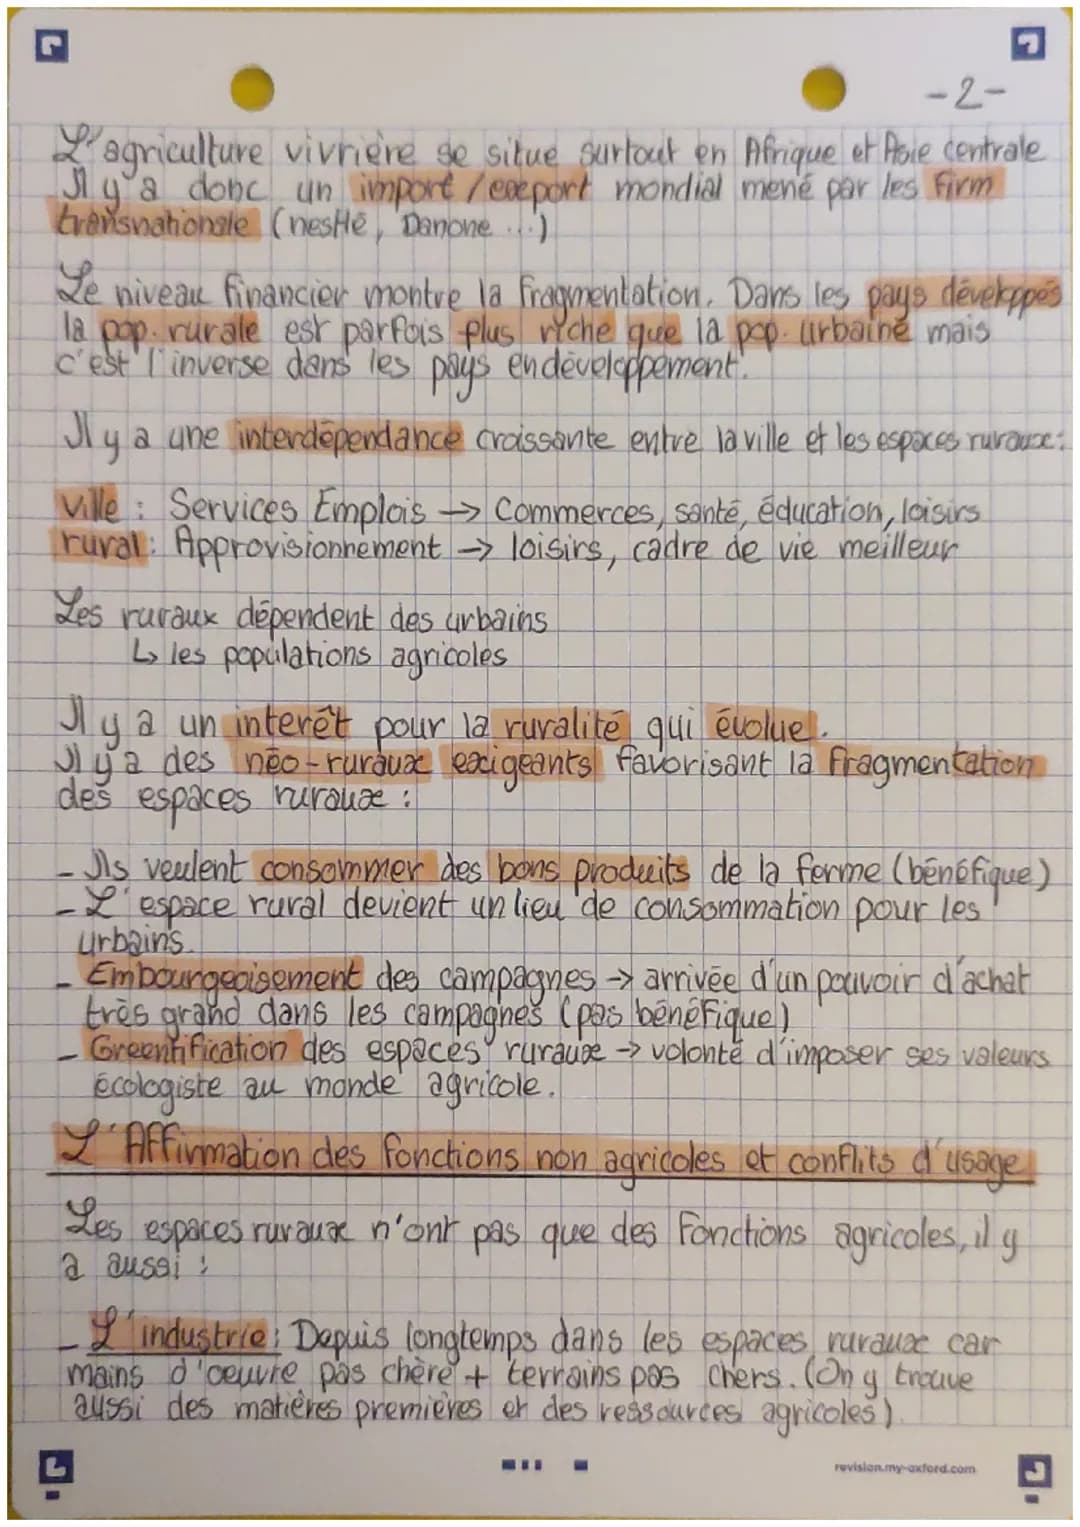 -2-
L'agriculture vivrière se situe surtout en Afrique et Asie centrale
Il y a donc un import/export mondial mené par les Firm
transnationale (nestlé, Danone ...)
Le niveau financier montre la fragmentation. Dans les pays développés
la pop. rurale est parfois plus riche que la pop. urbaine mais
c'est l'inverse dans les pays en développement.
Il y a une interdépendance croissante entre la ville et les espaces ruraux :
Ville : Services Emplois → Commerces, santé, éducation, loisirs
rural : Approvisionnement → loisirs, cadre de vie meilleur
Les ruraux dépendent des urbains
↳ les populations agricoles
Il y a un interêt pour la ruralité qui évolue.
Il y a des néo-ruraux exigeants favorisant la fragmentation
des espaces ruraux :
- Ils veulent consommer des bons produits de la ferme (bénéfique)
- L'espace rural devient un lieu de consommation pour les
urbains.
- Embourgeoisement des campagnes → arrivée d'un pouvoir d'achat
très grand dans les campagnes (pas bénéfique)
- Greentification des espaces ruraux → volonté d'imposer ses valeurs
écologiste au monde agricole.
L'Affirmation des fonctions non agricoles et conflits d'usage
Les espaces ruraux n'ont pas que des fonctions agricoles, il y
a aussi :
- L'industrie : Depuis longtemps dans les espaces ruraux car
mains d'oeuvre pas chère + terrains pas chers. (On y trouve
aussi des matières premières et des ressources agricoles).
revision.my-oxford.com